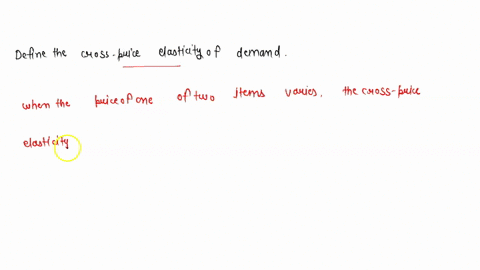 Define the cross-price elasticity of demand.
when the price of one of two items varies, the cross-price
elasticity